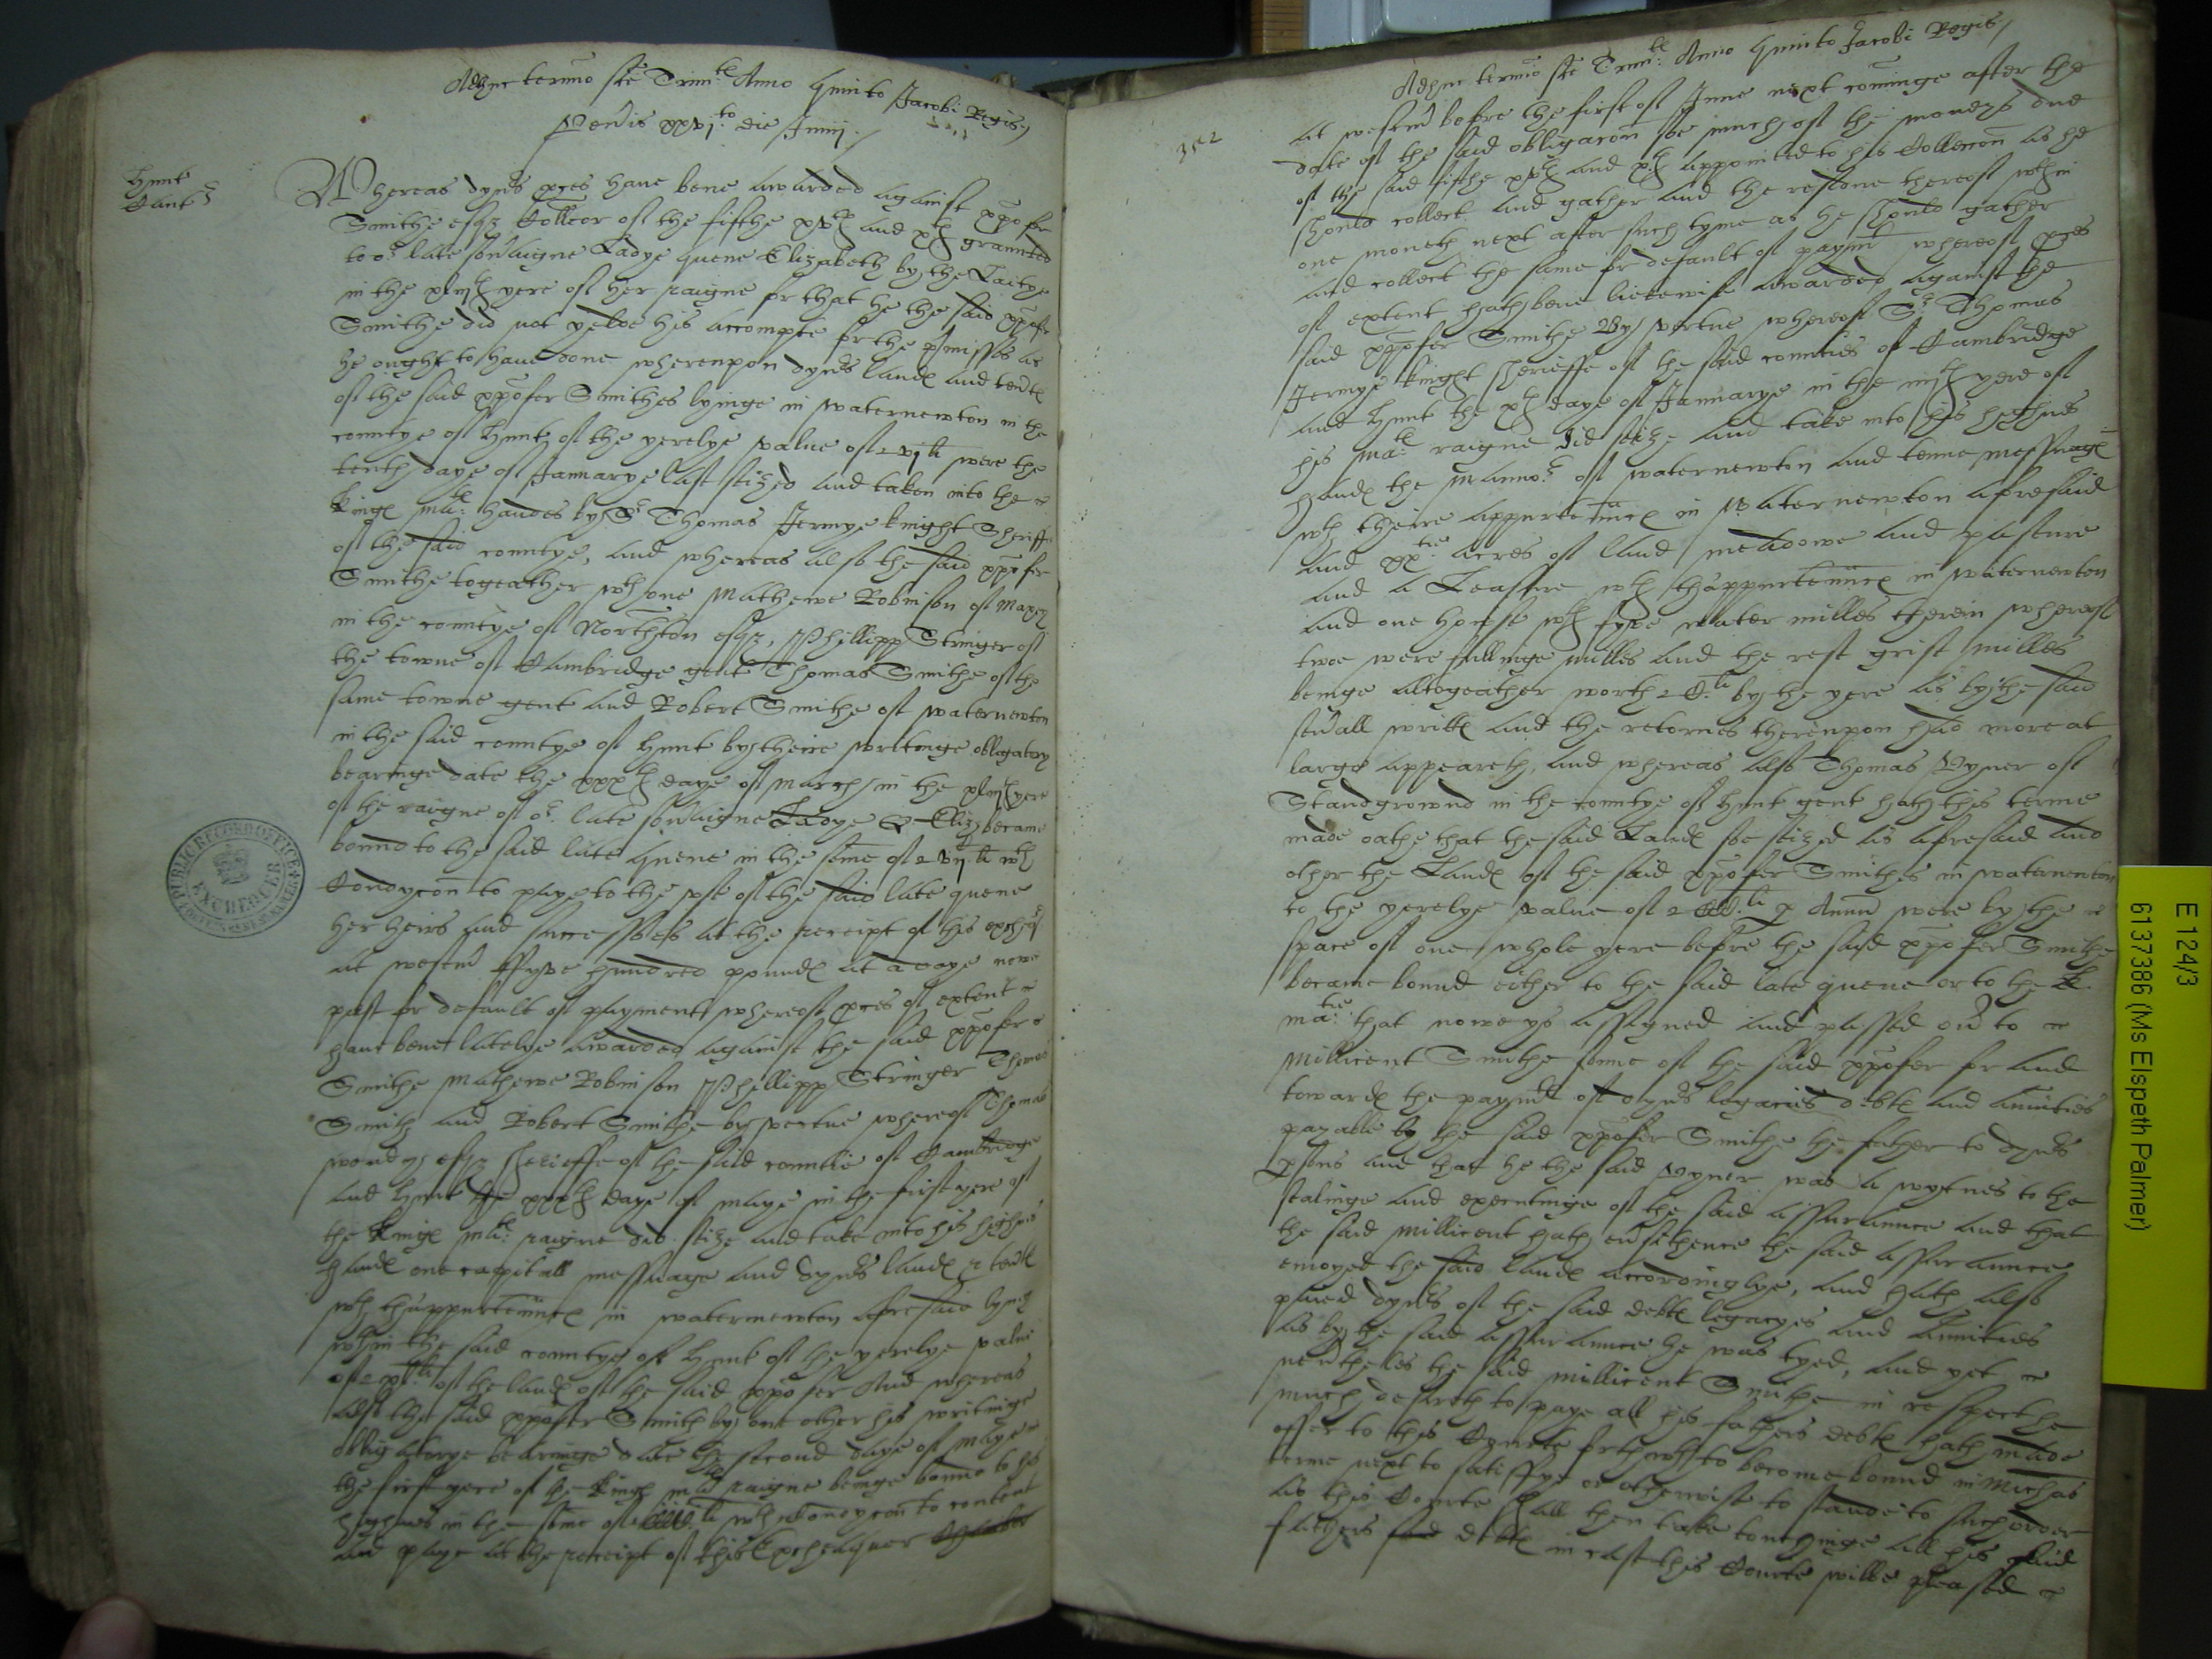 Adhuc termino sce Trinit: Anno quinto Jacobi Regis
Veneris xxvjto die Junij
Hunt
Cant
Whereas dyvrs pces have bene awarded against xpofer
Smithe esqr Collcor of the fifthe xvth and xth graunted
to or late sovraigne Ladye quene Elizabeth by the Laitye
in the yere of her raigne for that he the said xpofer
Smithe did not yelde his accompte for the pmisses as
he ought to have done whereupon dyvrs lands and tents
of the said xpofer Smithes lyinge in waternewton in the
countye of Hunt of the yerelye value of were the
tenth daye of Januarye last seized and taken into the
kings mats handes by Sr Thomas Jermye knight Sheriffe
of the said countye, and whereas also the said xpofer
Smithe togeather wth one Mathewe Robinson of Maxey
in the countye of Northton esqr, Phillipp Stringer of
the towne of Cambridge gent Thomas Smithe of the
same towne gent and Robert Smithe of waternewton
in the said countye of Hunt by theire writinge obligatory
bearinge date the xxxth daye of march in the yere
of the raigne of or late sovraigne Ladye Q Eliz became
bound to the said late quene in the some of wth
Condycon to paye to the use of the said late quene
her heirs and successors at the receipt of his excheqr
at westmr ffyve hundred pounds at a daye nowe
past for default of payment whereof pces of extent
have bene latelye awarded against the said xpofer
Smithe Mathewe Robinson Phillipp Stringer Thomas
Smith and Robert Smithe by vertue whereof Thomas
wendy esqr sherieffe of the said countie of Cambridge
and Hunt the xxxth daye of maye in the first yere of
the kings mats raigne did seize and take into his highnes
hands one capitall messuage and dyvrs lands & tents
wth thappurtennces in waternewton aforesaid lying
wthin the said countye of Hunt of the yerelye value
of of the lands of the said xpofer And whereas
also the said xpofer Smith by one other his writinge
obligatorye bearinge date the second daye of maye
the first yere of the kings mats raigne beinge bound to his
highnes in the some of wth condycon to content
and paye at the receipt of this Exchequer
PUBLIC RECORD OFFICE
EXCHEQUER
Adhuc termino sce Trinit: Anno quinto Jacobi Regis
352
at westmr before the first of June next cominge after the
date of the said obligacon soe much of the moneys due
of the said fifthe xvth and xth appointed to his Colleccon as he
should collect and gather and the residue thereof wthin
one moneth next after such tyme as he should gather
and collect the same for default of paymt whereof pces
of extent hath bene likewise awarded against the
said xpofer Smithe By vertue whereof Sr Thomas
Jermye knight sherieffe of the said counties of Cambridge
and Hunt the xth daye of Januarye in the iiijth yere of
his mats raigne did seize and take into his highnes
hands the mannor of waternewton and tenne messuags
wth theire appurtennces in Waternewton aforesaid
and acres of land meadowe and pasture
and a Leasure wth thappurtennces in waternewton
and one howse wth fyve water milles therein whereof
twoe were fullinge milles and the rest grist milles
beinge altogeather worth by the yere as by the said
sevrall writts and the retornes thereupon had more at
large appeareth, and whereas also Thomas Vyner of
Standgrownd in the countye of Hunt gent hath this terme
made oathe that the said Lands soe seized as aforesaid and
other the Lands of the said xpofer Smithes in waternewton
to the yerelye value of p Annu were by the
space of one whole yere before the said xpofer Smithe
became bound either to the said late quene or to the k.
matie that nowe ys assigned and passed ovr to
Millicent Smithe sonne of the said xpofer for and
towards the paymt of dyvrs legacies debts and anuities
payable by the said xpofer Smithe the father to dyvrs
psons and that he the said Vyner was a wytnes to the
sealinge and executinge of the said assurannce and that
the said Millicent hath evr sithence the said assurannce
enioyed the said lands accordinglye, and hath also
paied dyvrs of the said debts legacyes and anuities
as by the said assurannce he was tyed, and yet
nevrtheles the said Millicent Smithe in respect he
much desireth to paye all his fathers debts hath made
offer to this Courte forthwth to become bound in Michas
terme next to satisfye or otherwise to stande to such order
as this Courte shall then take touchinge all his said
fathers debts in case this Courte wilbe pleased
E 124/3
6137386 (Ms Elspeth Palmer)